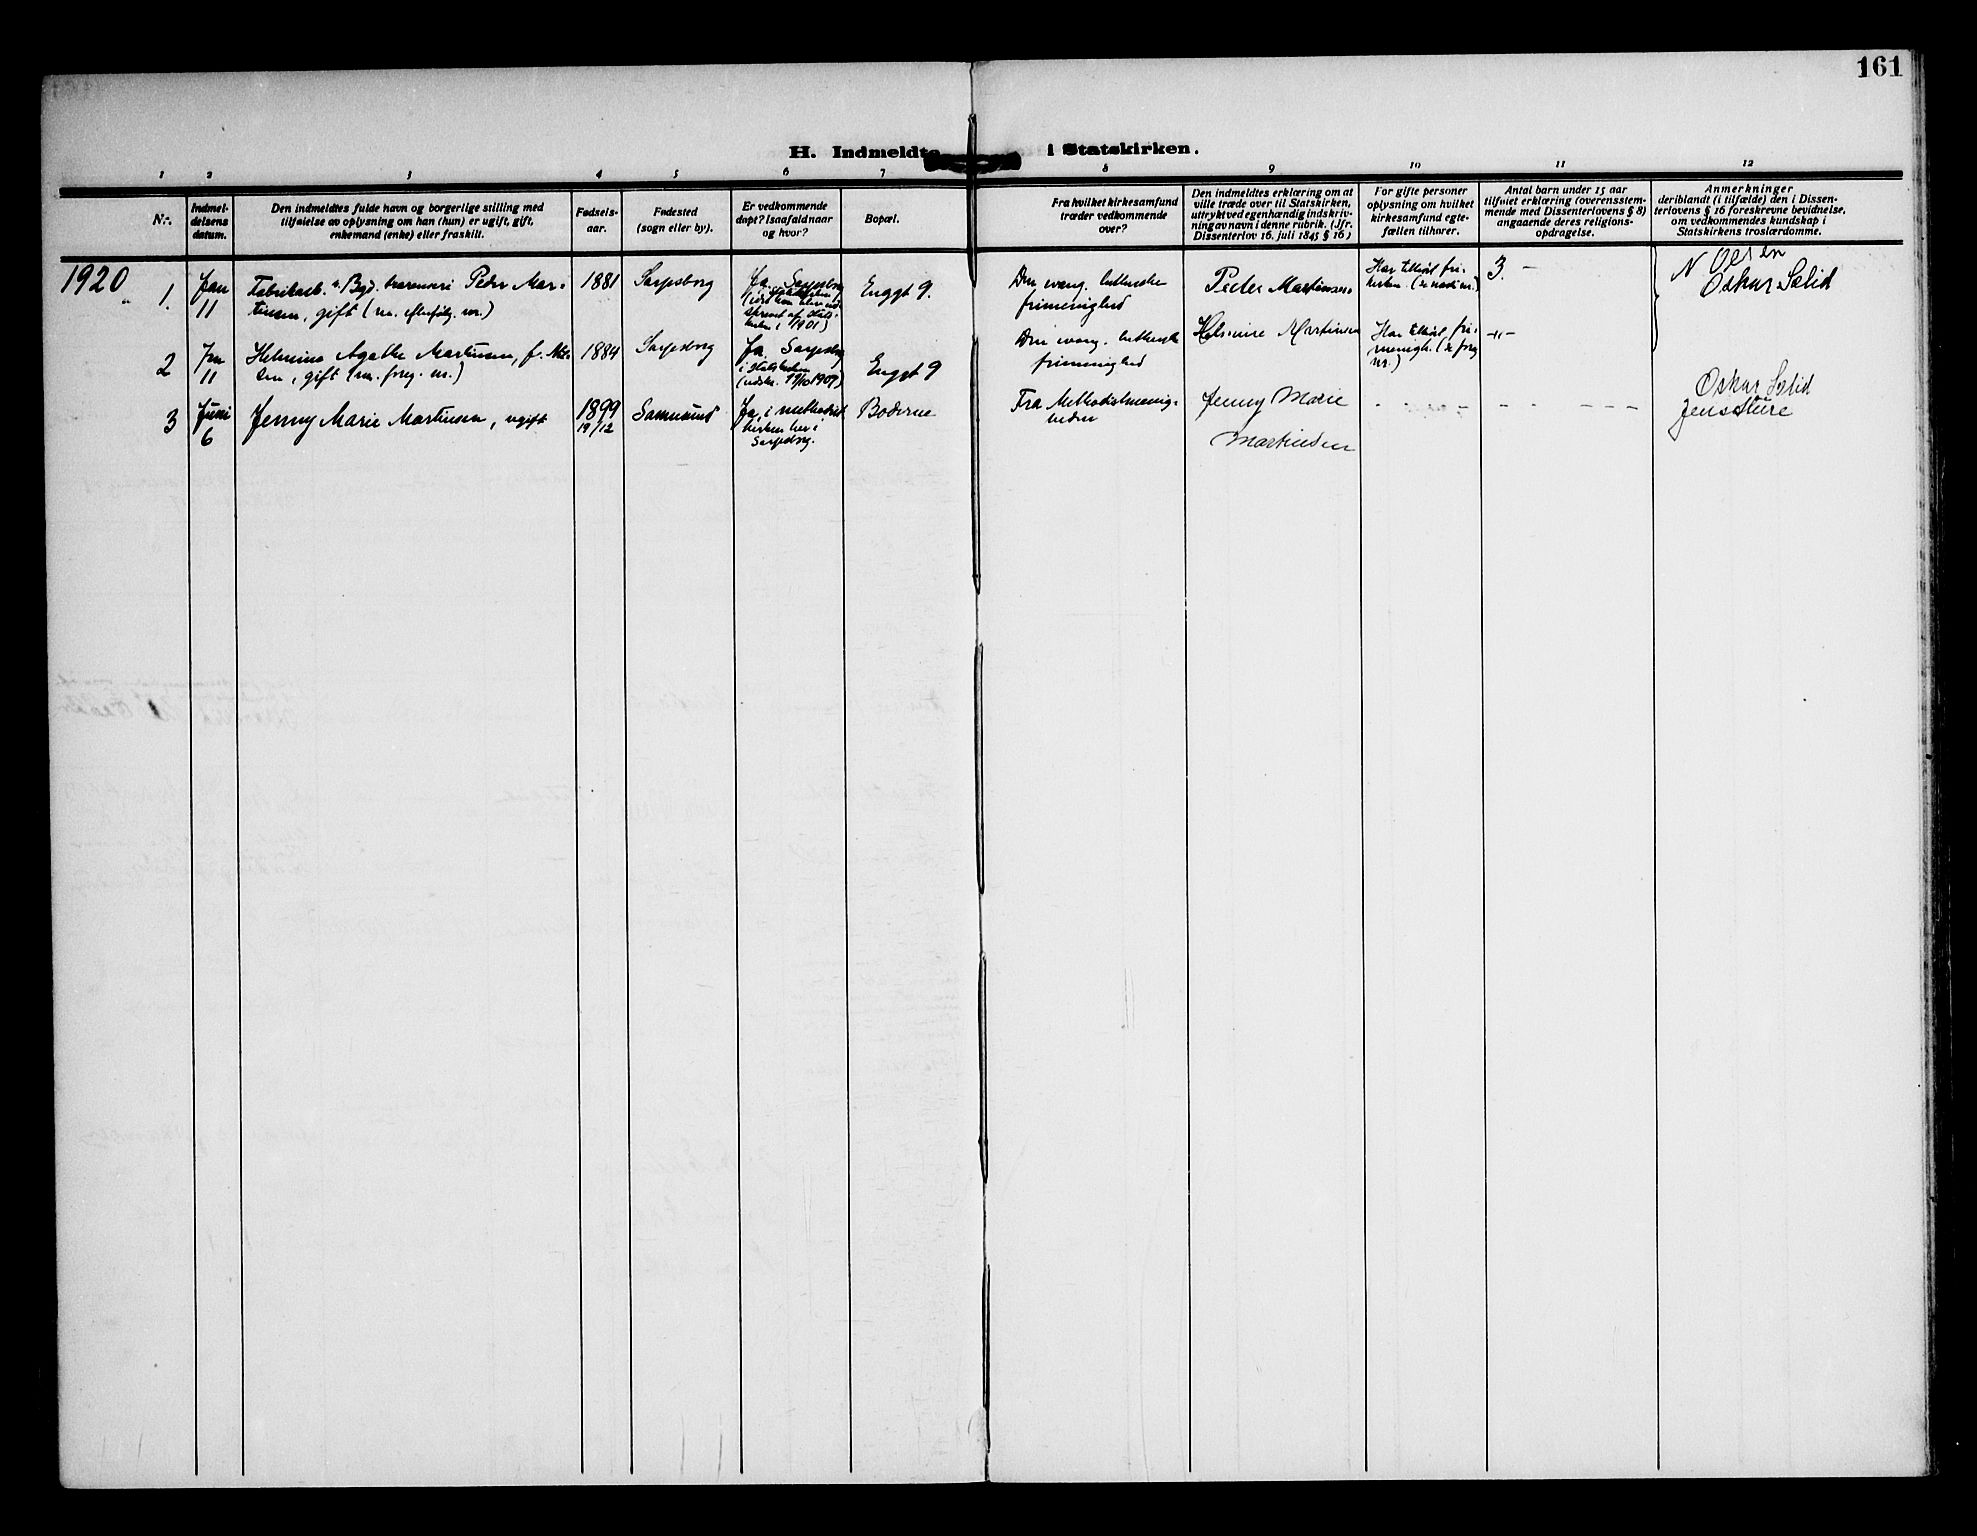 161
H. Indmeldte i Statskirken.
1 2 3 4 5 6 7 8 9 10 11 12
Nr.
Indmel-
delsens
datum.
Den indmeldtes fulde navn og borgerlige stilling med
tilføielse av oplysning om han (hun) er ugift, gift,
enkemand (enke) eller fraskilt.
Fødsels-
aar.
Fødested
(sogn eller by).
Er vedkommende
døpt? Isaafald naar
og hvor?
Bopæl.
Fra hvilket kirkesamfund
træder vedkommende
over?
Den indmeldtes erklæring om at
ville træde over til Statskirken,
uttrykt ved egenhændig indskriv-
ning av navn i denne rubrik. (Jfr.
Dissenterlov 16. juli 1845 § 16)
For gifte personer
oplysning om hvilket
kirkesamfund egte-
fællen tilhører.
Antal barn under 15 aar
tilføiet erklæring (overensstem-
mende med Dissenterlovens § 8)
angaaende deres religions-
opdragelse.
Anmerkninger
deriblandt (i tilfælde) den i Dissen-
terlovens § 16 foreskrevne bevidnelse,
om vedkommendes kundskap i
Statskirkens troslærdomme.
1920
1.
Jan
11
Fabrikarb. Peder Mar-
tinsen, gift (m. efterfølg. nr.)
1881
Sarpsborg
Ja. Sarpsborg
kirken i 1901)
Enggt 9.
Den evang. lutherske
frimenighed
Peder Martinsen
Har tilhørt fri-
kirken.
3. -
N Olsen
Oskar Sælid
2
Jan
11
Helmine Agathe Martinsen, f. Niel-
sen, gift (m. foreg. nr.)
1884
Sarpsborg
Ja. Sarpsborg
i statskirken
(udskr. 19/10 1907)
Enggt 9
Den evang. lutherske
frimenighed
Helmine Martinsen
Har tilhørt fri-
menigh. (se foreg
nr.)
-"-
3
Juni
6
Jenny Marie Martinsen, ugift
1899
19/12
Sannesund
Ja, i methodist
kirken her i
Sarpsborg.
Boderne
Fra Methodistmenig-
heden
Jenny Marie
Martinsen
- - - - - - - -
Oskar Sælid
Jens Sture